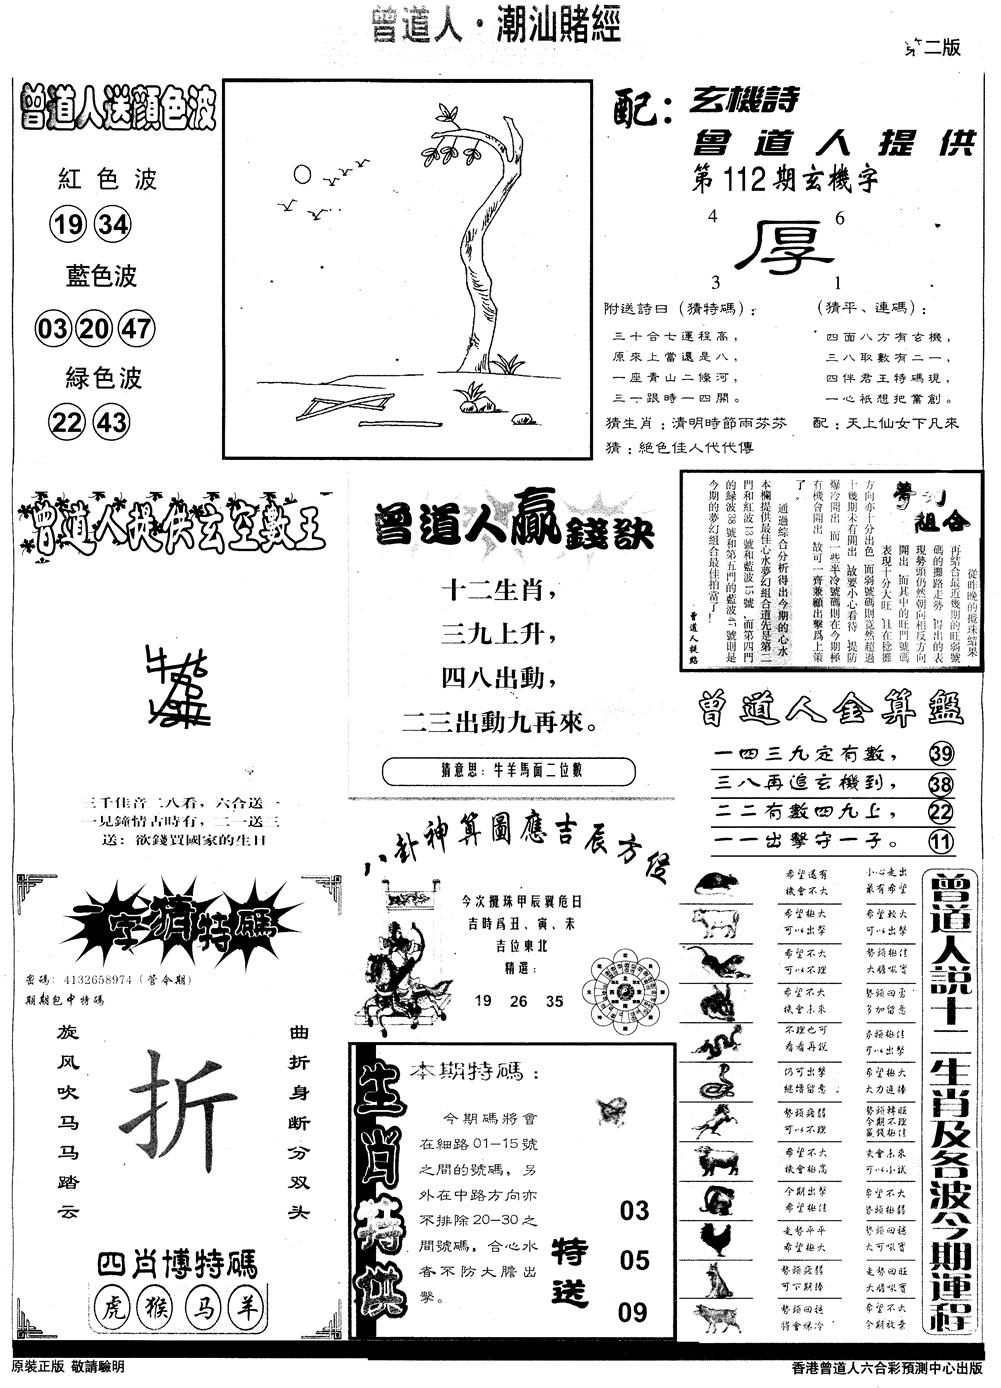 曾道人·潮汕賭經
第二版
曾道人送顏色波
紅色波
19 34
藍色波
03 20 47
緑色波
22 43
配：玄機詩
曾道人提供
第112期玄機字
4 6
厚
3 1
附送詩曰（猜特碼）：
三十合七運程高，
原來上當還是八，
一座青山二條河，
三一跟時一四開。
猜生肖：清明時節雨芬芬
猜：絕色佳人代代傳
（猜平、連碼）：
四面八方有玄機，
三八取數有二一，
四伴君王特碼現，
一心祇想把業創。
配：天上仙女下凡來
曾道人提供玄空數王
三千佳音二八看，六合送一
一見鐘情古時有，二一送三
送：欲錢買國家的生日
曾道人贏錢訣
十二生肖，
三九上升，
四八出動，
二三出動九再來。
猜意思：牛羊馬面二位數
夢幻組合
從昨晚的攪珠結果
再結合最近幾期的旺弱號
碼的攤路走勢，得出的表
現勢頭仍然朝向相反方向
開出，而其中的旺門號碼
表現十分大旺，且在穩攤
方向亦十分出色，而弱號碼則竟然超過
十幾期未有開出，故要小心看待，提防
爆冷開出，而一些半冷號碼則在今期極
有機會開出，故可一齊兼顧出擊爲上策
了。
通過綜合分析得出今期的心水
本欄提供最佳心水夢幻組合道先是第二
門和紅波13號和藍波15號，而第四門
的緑波38號和第五門的藍波47號則是
今期的夢幻組合最佳拍當了！
曾道人提點
曾道人金算盤
一四三九定有數， 39
三八再追玄機到， 38
二二有數四九上， 22
一一出擊守一子。 11
八卦神算圖應吉辰方位
今次攪珠甲辰翼危日
吉時爲丑、寅、未
吉位東北
精選：
19 26 35
一字猜特碼
密碼：4132658974（管令期）
期期包中特碼
旋风吹马马踏云
折
曲折身断分双头
四肖博特碼
虎 猴 马 羊
生肖特供
本期特碼：
今期碼將會
在細路01-15號
之間的號碼，另
外在中路方向亦
不排除20-30之
間號碼，合心水
者不防大膽出
擊。
特送
03
05
09
曾道人説十二生肖及各波今期運程
希望還有 小心走出
機會不大 最有希望
希望極大 希望較大
可以出擊 可以出擊
希望不大 勢頭極佳
可以不理 大膽吸寶
希望不大 勢頭回勇
機會未來 多加留意
不理也可 勢頭極佳
看看再説 可以出擊
仍可出擊 希望極大
繼續留意 大力追捧
勢頭疲弱 勢頭轉旺
可以不理 今期不理
贏錢極佳
希望不大 機會未來
機會極高 可以小試
今期出擊 希望不大
希望極佳 勢頭極弱
走勢平平 勢頭回穩
希望極大 大可吸寶
勢頭疲弱 走勢回旺
可下期捧 大膽吸寶
勢頭回穩 希望不大
將會爆冷 今期放棄
原裝正版 敬請驗明
香港曾道人六合彩預測中心出版